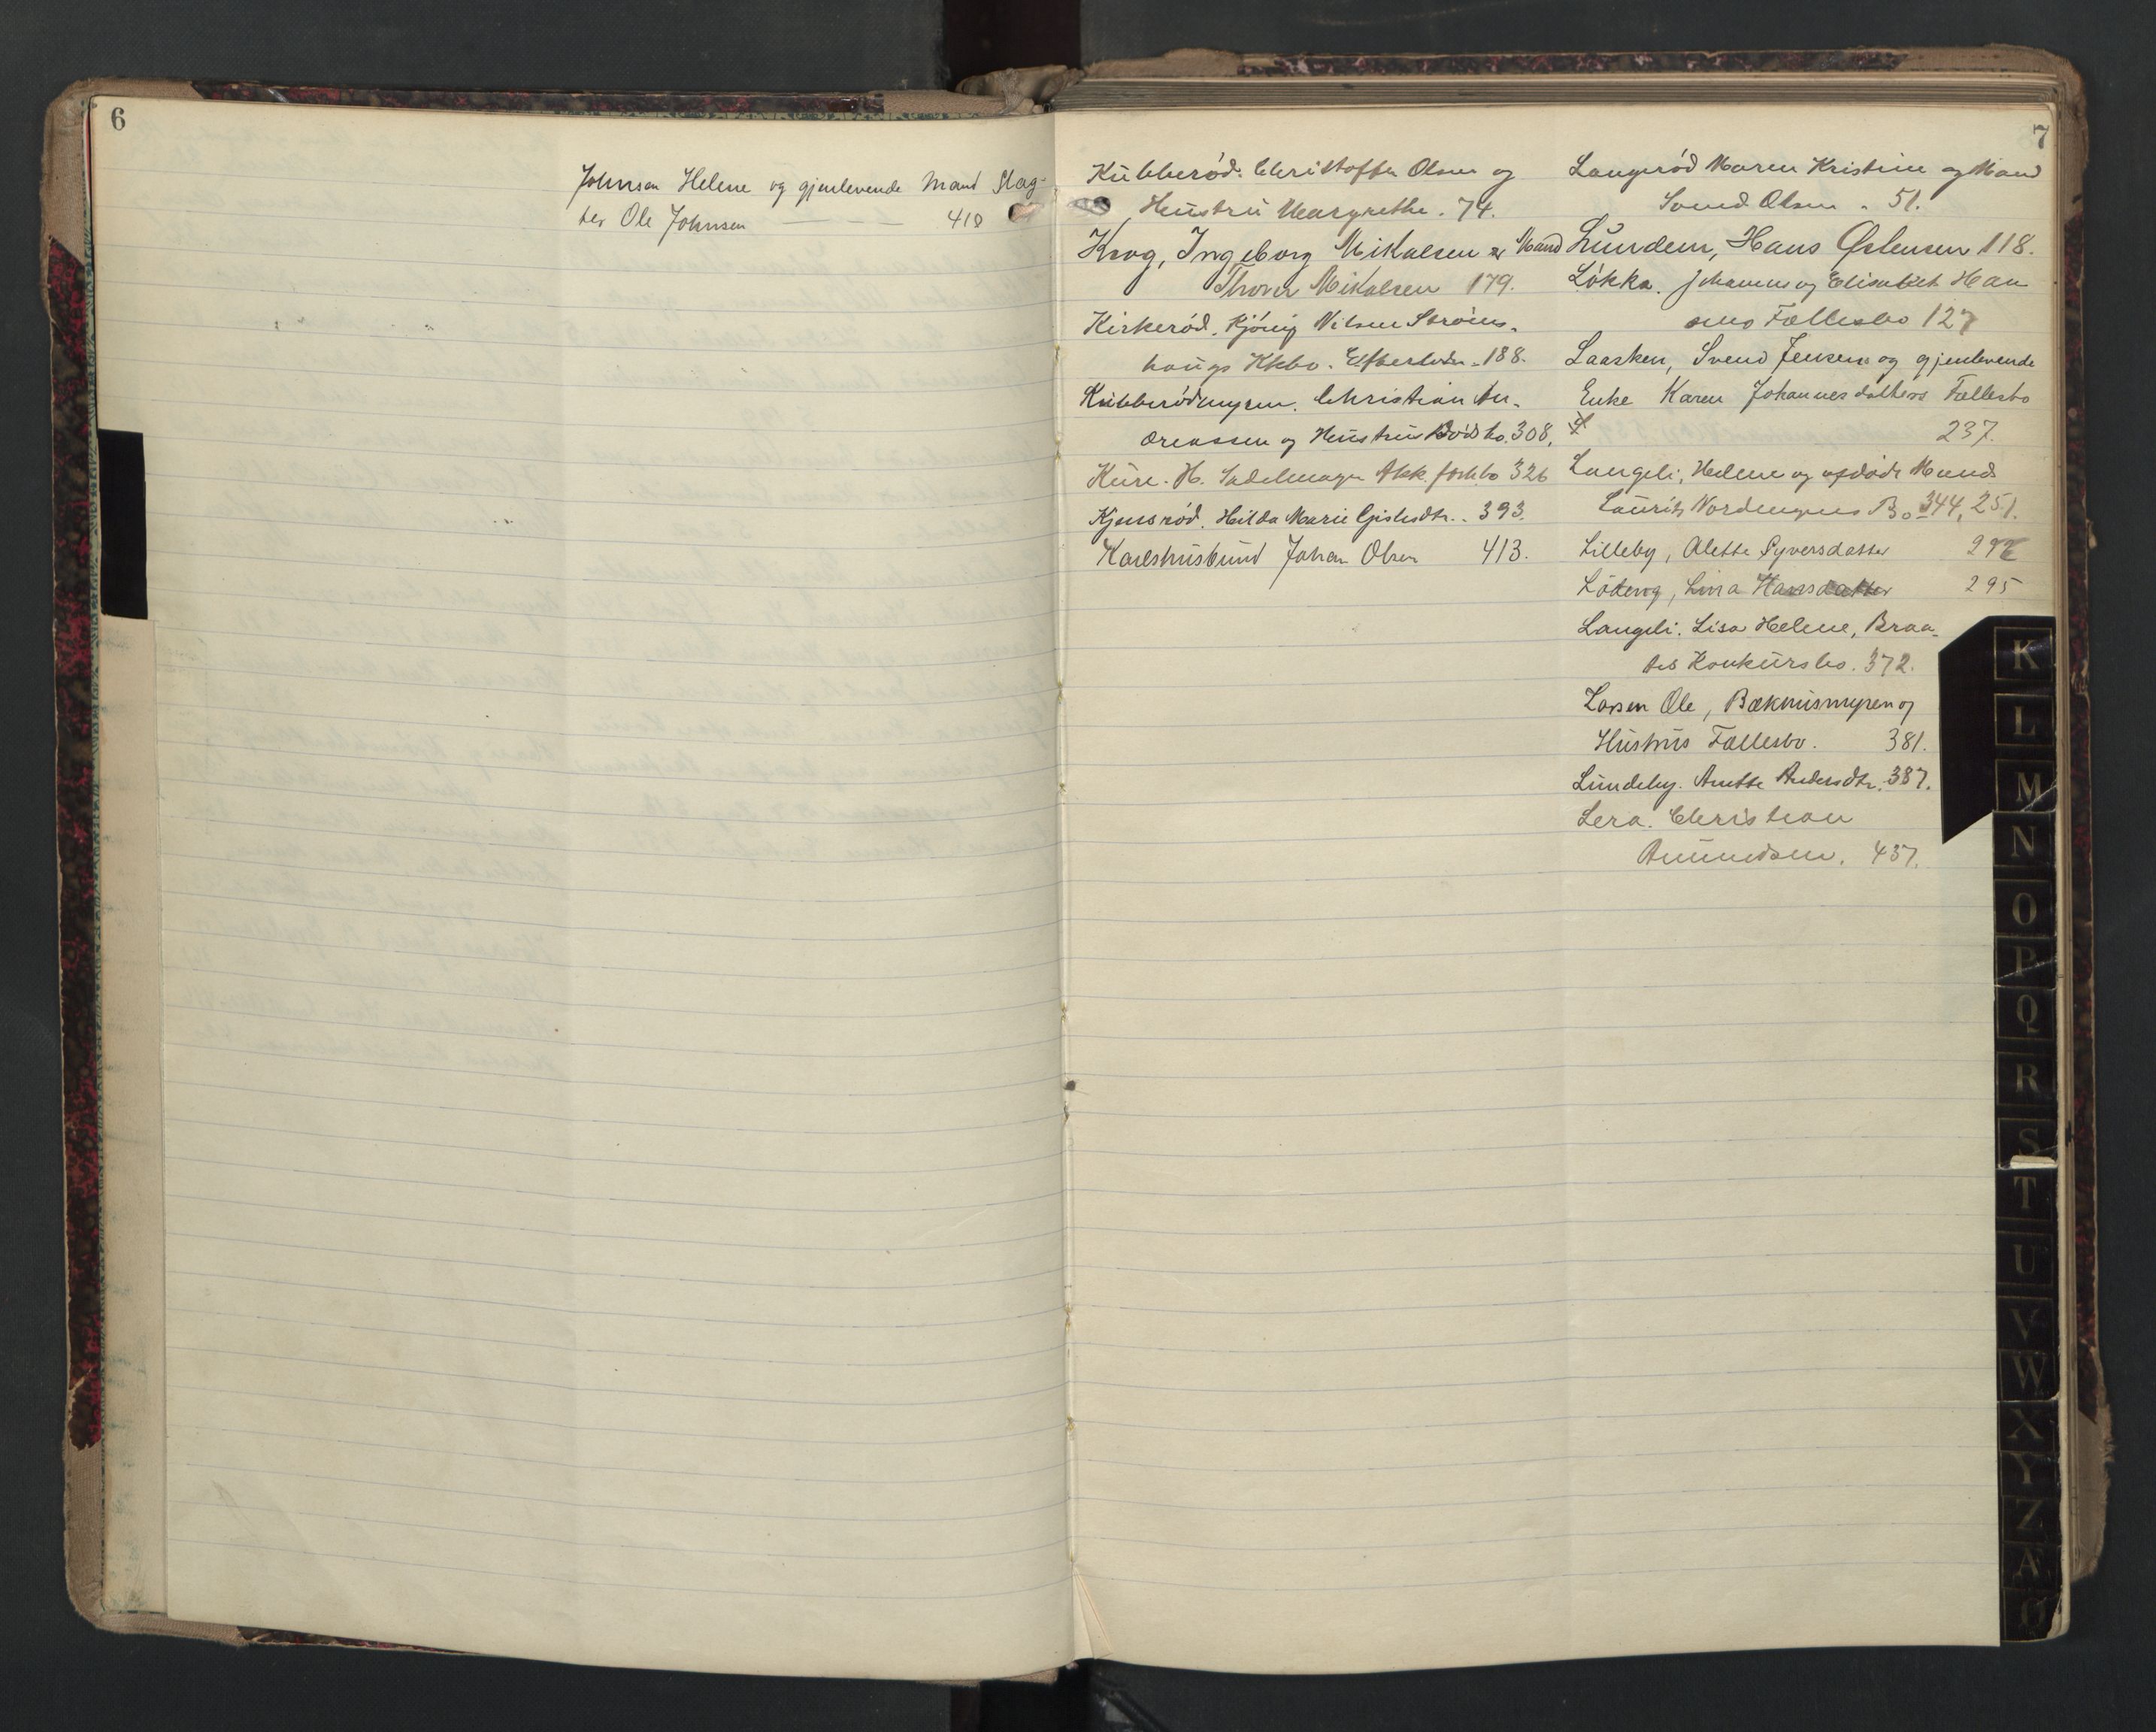 6
Johnsen Helene og gjenlevende Mand Slag-
ter Ole Johnsen — — 418
7
Kubberød. Christoffer Olsen og
Hustru Margrethe. 74.
Krog, Ingeborg Mikalsen & Mand
Thorer Mikalsen 179.
Kirkerød. Kjönig Nilsen Ströms-
haugs Kkbo. Efterladn. 188.
Kubberødmyren. Christian An-
dreassen og Hustrus Dödsbo. 308.
Kure. H. Sadelmager Akk. forh.bo 326
Kjensrød. Hilda Marie Gislesdtr. 393.
Karlshusbund Johan Olsen 413.
Langerød Maren Kristine og Mand
Svend Olsen. 51.
Lundem, Hans Østensen 118.
Løkka. Johannes og Elisabeth Han
sens Fællesbo 127
Laasken, Svend Jensens og gjenlevende
Enke Karen Johannesdatters Fællesbo
L 237.
Langeli, Helene og afdöde Mands
Laurits Nordengens Bo 344, 251.
Lilleby, Olette Syversdatter 292
Löberg, Lina Hansdatter 295
Langeli. Lisa Helene, Braa-
tes Konkursbo. 372.
Larsen Ole, Bækhusmyren og
Hustrus Fællesbo. 381.
Lundeby. Anette Andersdtr. 387.
Lera. Christian
Amundsen. 437.
K
L
M
N
O
P
Q
R
S
T
U
V
W
X
Y
Z
Æ
Ø